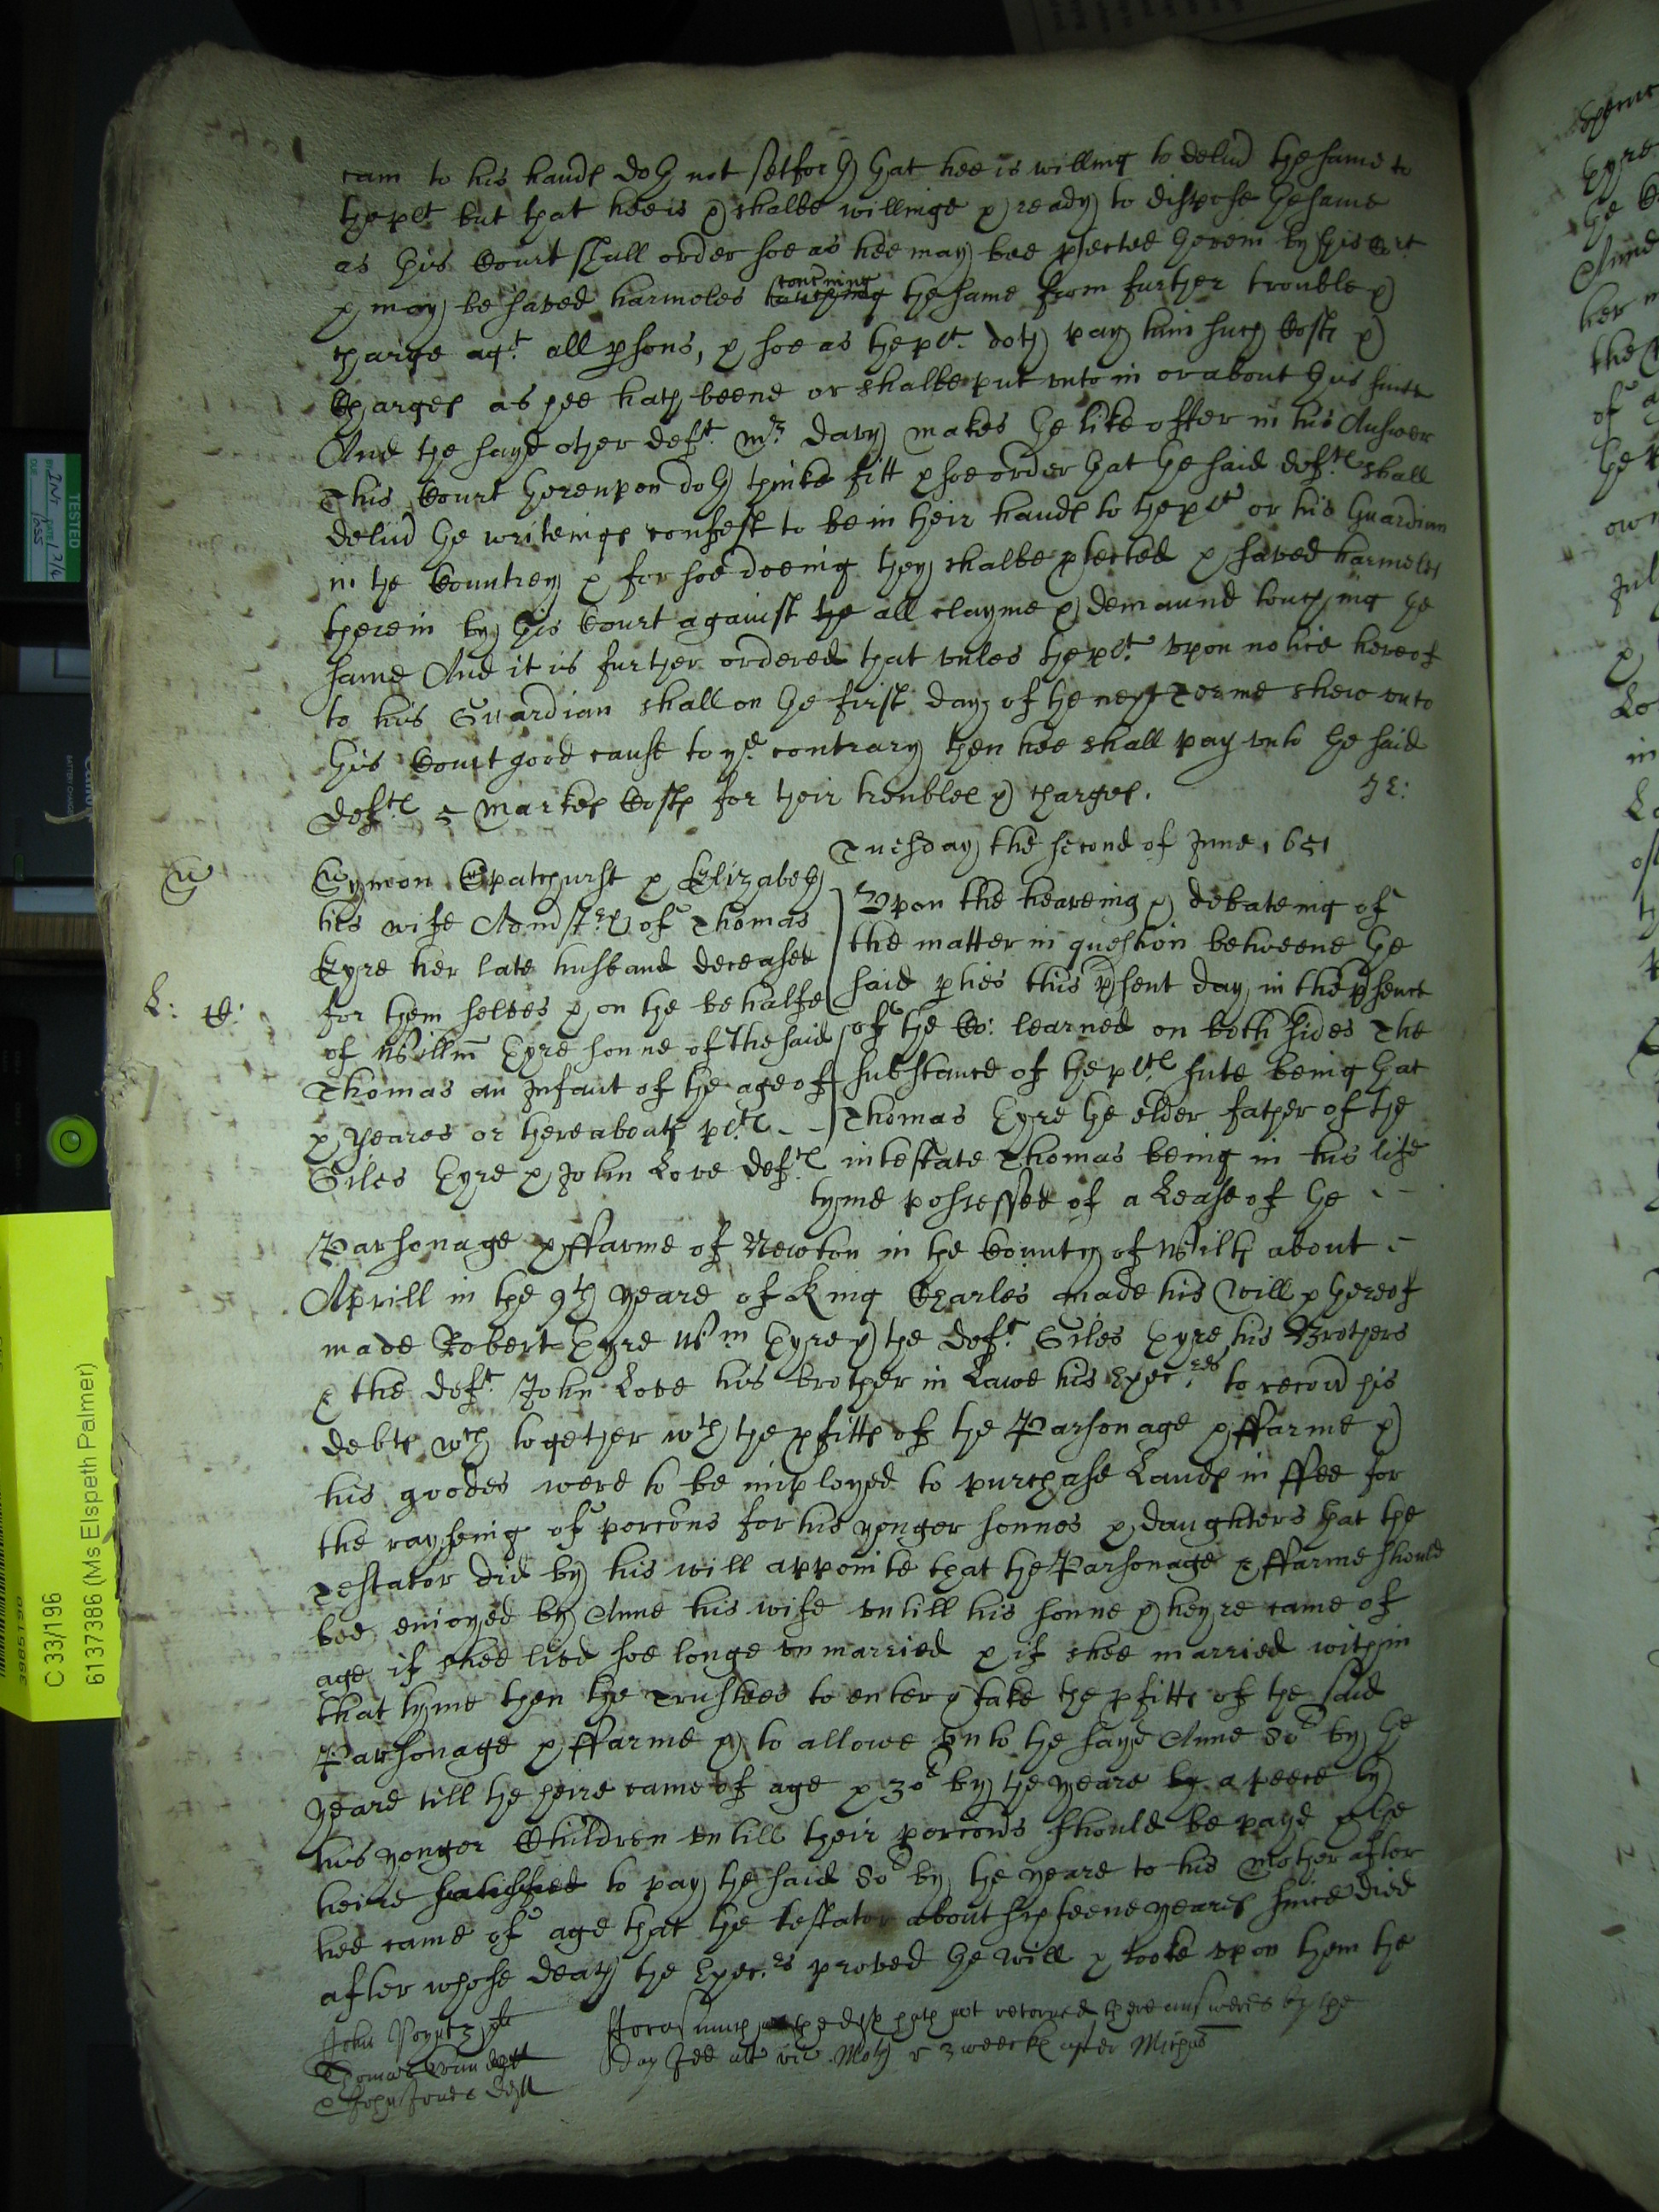 cam to his hands doth not setforth that hee is willing to deliũ the same to
the plt but that hee is & shalbe willinge & ready to dispose the same
as this Court shall order soe as hee may bee ptected therein by this Cort
& may be saved harmeles touching concñing the same from further trouble &
charge agt all psons, & soe as the plt doth pay him such Costs &
Charges as hee hath beene or shalbe put unto in or about this suite
And the sayd other deft Mr Davy makes the like offer in his Answer
This Court thereupon doth thinke fitt & soe order that the said defts shall
deliũ the writeings confest to be in their hands to the plt or his Guardian
in the Countrey & for soe doeing they shalbe ptected & saved harmeles
therein by this Court against the all clayme & demaund touching the
same And it is further ordered that unles the plt upon notice hereof
to his Guardian shall on the first day of the next Terme shew unto
this Court good cause to ye contrary then hee shall pay unto the said
defts 5 Markes Costs for their troubles & charges.
Tuesday the second of June 1651
Symon Spatchurst & Elizabeth
his wife Admstrx of Thomas
Eyre her late husband deceased
for them selves & on the behalfe
of Willm Eyre sonne of the said
Thomas an Infant of the age of
x yeares or thereabouts plts
Giles Eyre & John Love defts
Upon the heareing & debateing of
the matter in question betweene the
said pties this psent day in the psence
of the Co: learned on both sides The
substance of the plts sute being that
Thomas Eyre the elder father of the
intestate Thomas being in his life
tyme possessed of a Lease of the
Parsonage & ffarme of Newton in the County of Wilts about
Aprill in the 9th yeare of King Charles made his Will & thereof
made Robert Eyre Wm Eyre & the deft Giles Eyre his Brothers
& the deft John Love his brother in Lawe his Execres to recoũ his
debts wch together wth the pfitts of the Parsonage & ffarme &
his goodes were to be imployed to purchase Lands in ffee for
the rayseing of porcõns for his yonger sonnes & daughters that the
Testator did by his will appointe that the Parsonage & ffarme should
bee enioyed by Anne his wife untill his sonne & heyre came of
age if shee lived soe longe unmarried & if shee married within
that tyme then the Trustees to enter & take the pfitts of the said
Parsonage & ffarme & to allowe unto the sayd Anne 80l by the
yeare till the heire came of age & 30l by the yeare by a peece by
his yonger Children untill their porcõns should be payd & the
heire satisfied to pay the said 80l by the yeare to his Mother after
hee came of age that the testator about sixteene yeares since died
after whose death the Execrs proved the will & tooke upon them the
John Poyntz plt
Thomas deft
& John Jones deft
fforasmuch the deft hath not retorned there answeres by the
day 3 weeks after Michas